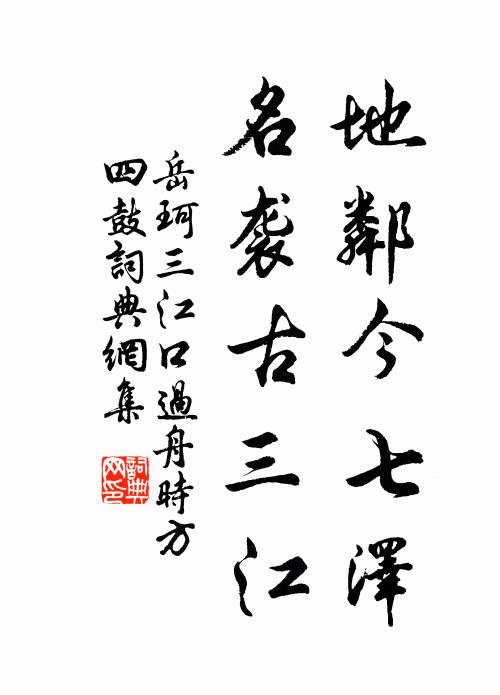 地鄰今七澤
名袭古三江
岳珂三江口過舟時方
四鼓詞典網集
詞典網印